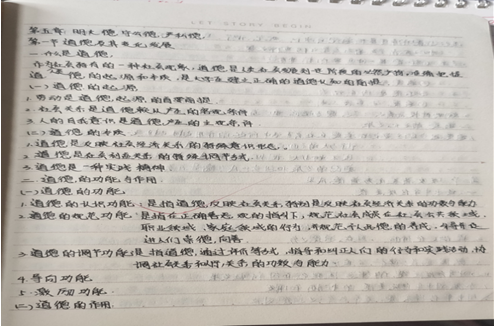 LET STORY BEGIN
第五章 明大德守公德 严私德
第一节 道德及其变化发展
一 什么是道德
作为社会独有的一种社会现象,道德是
道德的起源和本质,是 正确的道德认知的前提
(一)道德的起源
1.劳动是道德起源的首要前提
2.社会关系是道德赖以产生的客观条件
3.人的自我意识是道德产生的主观条件
(二)道德的本质
1.道德是反映社会经济关系的特殊意识形态。
2.道德是社会利益关系的特殊调节方式
3.道德是一种实践精神
二 道德的功能与作用
(一)道德的功能
1.道德的认识功能:是指道德反映社会关系特别是反映社会经济关系的功效与能力
2.道德的规范功能:是指在正确善恶观的指引下,规范社会成员在社会公共领域、
职业领域、家庭领域的行为,并规范个人品德的养成,
进人们崇德向善
3.道德的调节功能:是指道德通过评价等方式,指导和纠正人们的行为和实践活动,协
调社会关系和人际关系的功效与能力。
4.导向功能
5.激励功能
(二)道德的作用